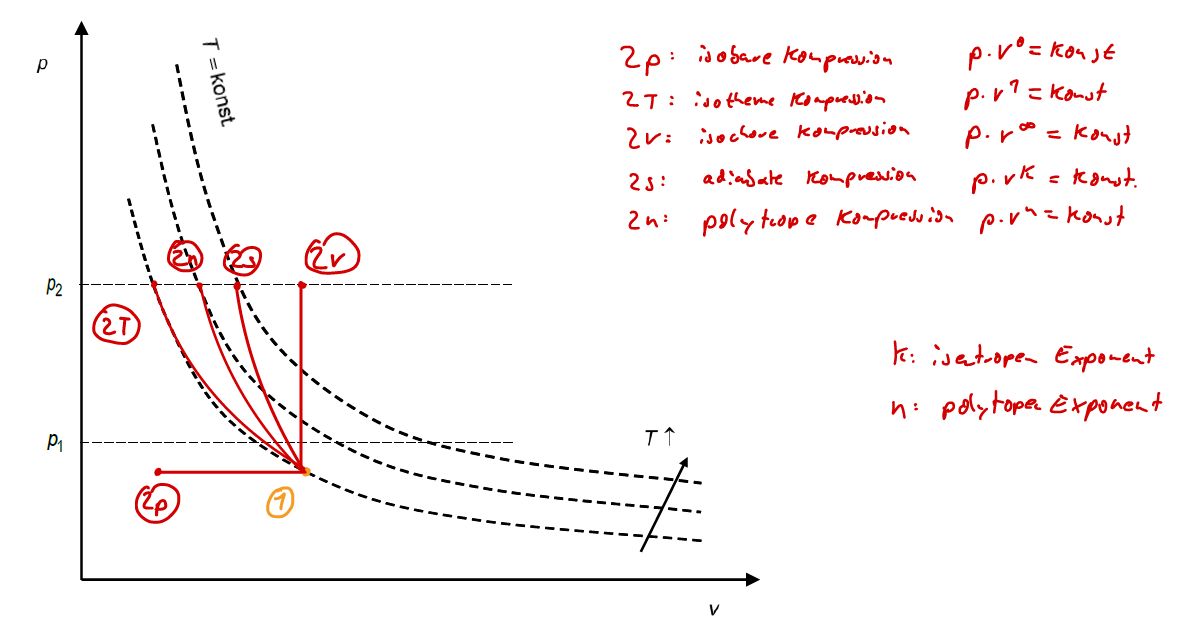 p
T = konst.
2p: isobare Kompression p · v⁰ = konst
2T: isotherme Kompression p · v¹ = konst
2v: isochore Kompression p · v^∞ = konst
2s: adiabate Kompression p · v^k = konst.
2n: polytrope Kompression p · v^n = konst
2n 2s 2v
p₂
2T
k: isentropen Exponent
n: polytropen Exponent
p₁
T ↑
2p
1
v